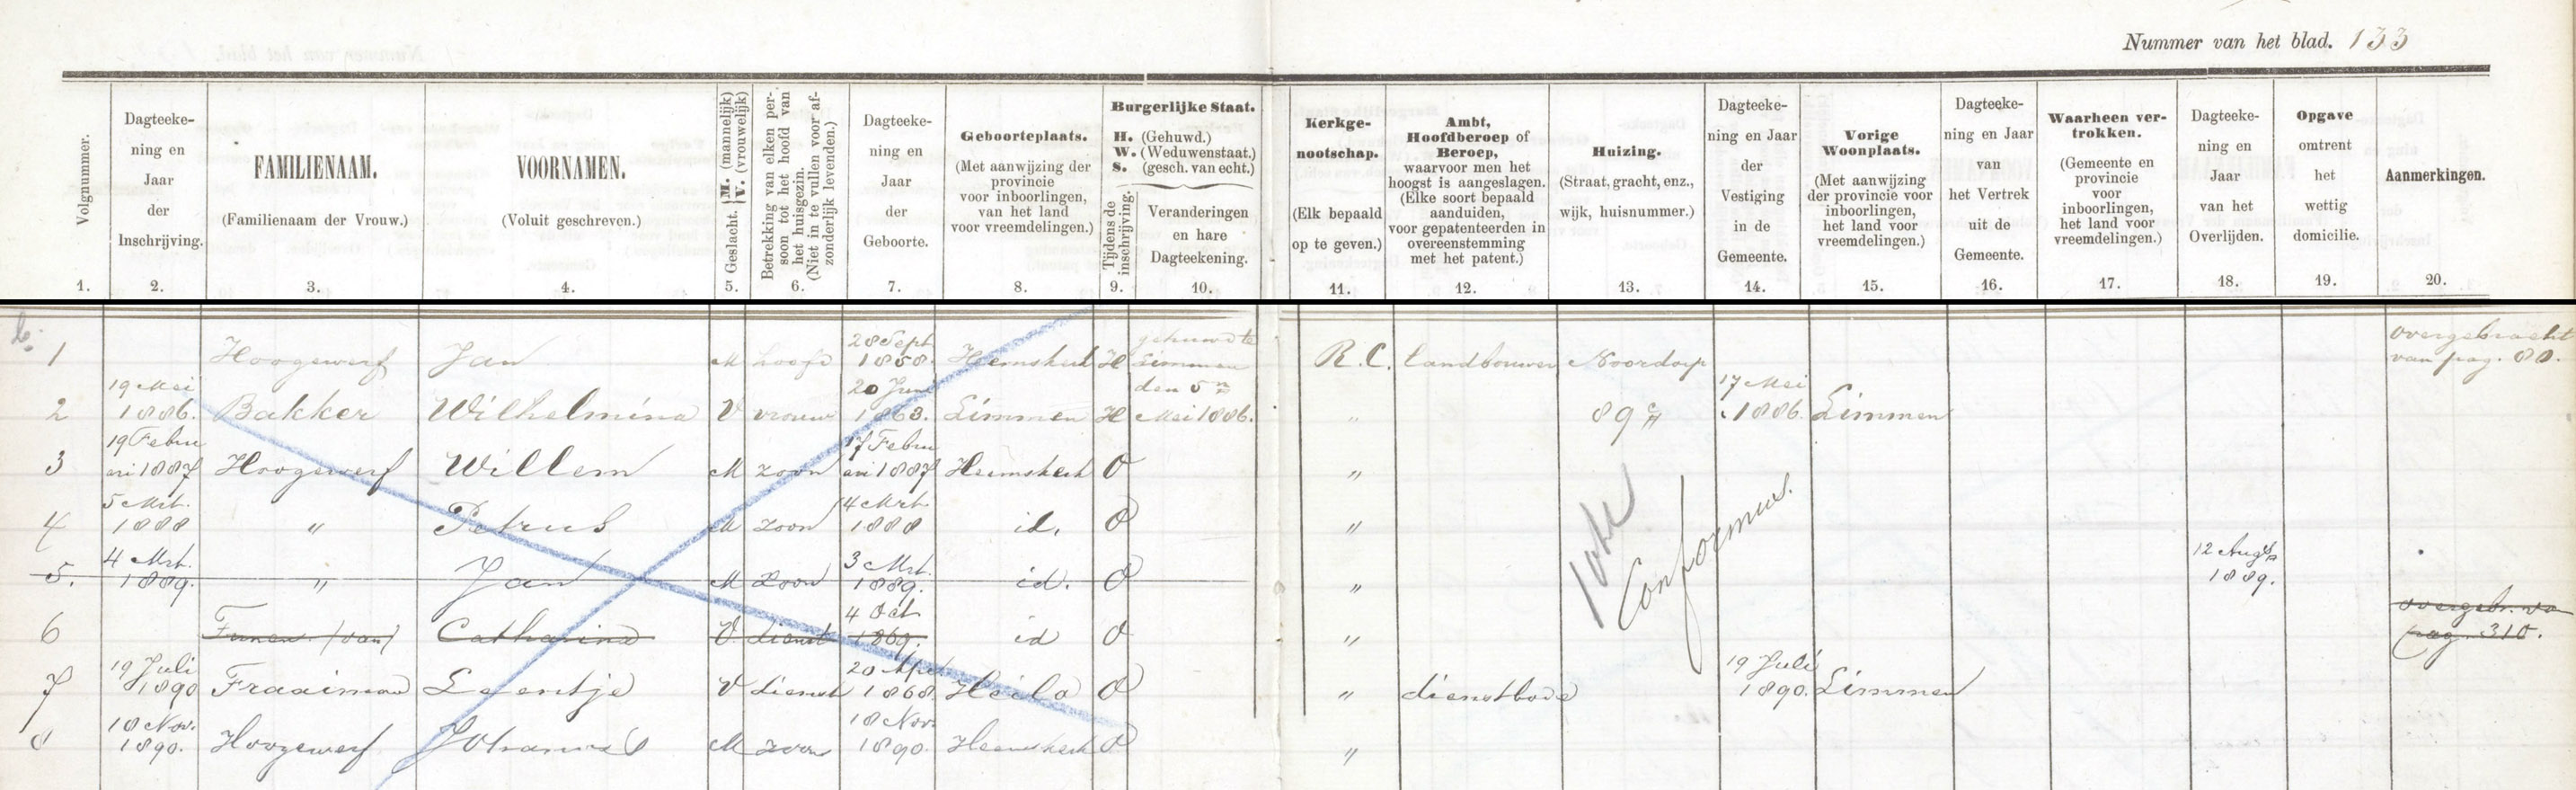 Nummer van het blad. 133
Volgnummer.
1.
Dagteeke-
ning en
Jaar
der
Inschrijving.
2.
FAMILIENAAM.
(Familienaam der Vrouw.)
3.
VOORNAMEN.
(Voluit geschreven.)
4.
Geslacht. {M. (mannelijk) V. (vrouwelijk)
5.
Betrekking van elken per-
soon tot het hoofd van
het huisgezin.
(Niet in te vullen voor af-
zonderlijk levenden.)
6.
Dagteeke-
ning en
Jaar
der
Geboorte.
7.
Geboorteplaats.
(Met aanwijzing der
provincie
voor inboorlingen,
van het land
voor vreemdelingen.)
8.
Burgerlijke Staat.
H. (Gehuwd.)
W. (Weduwenstaat.)
S. (gesch. van echt.)
Tijdens de
inschrijving.
9.
Veranderingen
en hare
Dagteekening.
10.
Kerkge-
nootschap.
(Elk bepaald
op te geven.)
11.
Ambt,
Hoofdberoep of
Beroep,
waarvoor men het
hoogst is aangeslagen.
(Elke soort bepaald
aanduiden,
voor gepatenteerden in
overeenstemming
met het patent.)
12.
Huizing.
(Straat, gracht, enz.,
wijk, huisnummer.)
13.
Dagteeke-
ning en Jaar
der
Vestiging
in de
Gemeente.
14.
Vorige
Woonplaats.
(Met aanwijzing
der provincie voor
inboorlingen,
het land voor
vreemdelingen.)
15.
Dagteeke-
ning en Jaar
van
het Vertrek
uit de
Gemeente.
16.
Waarheen ver-
trokken.
(Gemeente en
provincie
voor
inboorlingen,
het land voor
vreemdelingen.)
17.
Dagteeke-
ning en
Jaar
van het
Overlijden.
18.
Opgave
omtrent
het
wettig
domicilie.
19.
Aanmerkingen.
20.
1 Hoogewerf Jan M hoofd 28 Sept 1858. Heemskerk H gehuwd te Limmen den 5n Mei 1886. R.C. Landbouwer Noordorp overgebracht van pag. 80.
2 19 Mei 1886. Bakker Wilhelmina V vrouw 20 Juni 1863. Limmen H " 89 17 Mei 1886. Limmen
3 19 Februari 1887 Hoogewerf Willem M zoon 17 Februari 1887 Heemskerk O "
4 5 Mrt. 1888 " Petrus M zoon 4 Mrt. 1888 id. O "
5. 4 Mrt. 1889. " Jan M zoon 3 Mrt. 1889. id. O " 12 Augs 1889.
Conformeus.
6 (van) Catharina V. dienst 4 Oct 1869. id O " overgebr. va pag. 310.
7 19 Juli 1890 Fraaiman Leentje V dienst 20 Apr. 1868. Heilo O " dienstbode 19 Juli 1890. Limmen
8 18 Nov. 1890. Hoogewerf Johannes M zoon 18 Nov. 1890. Heemskerk O "